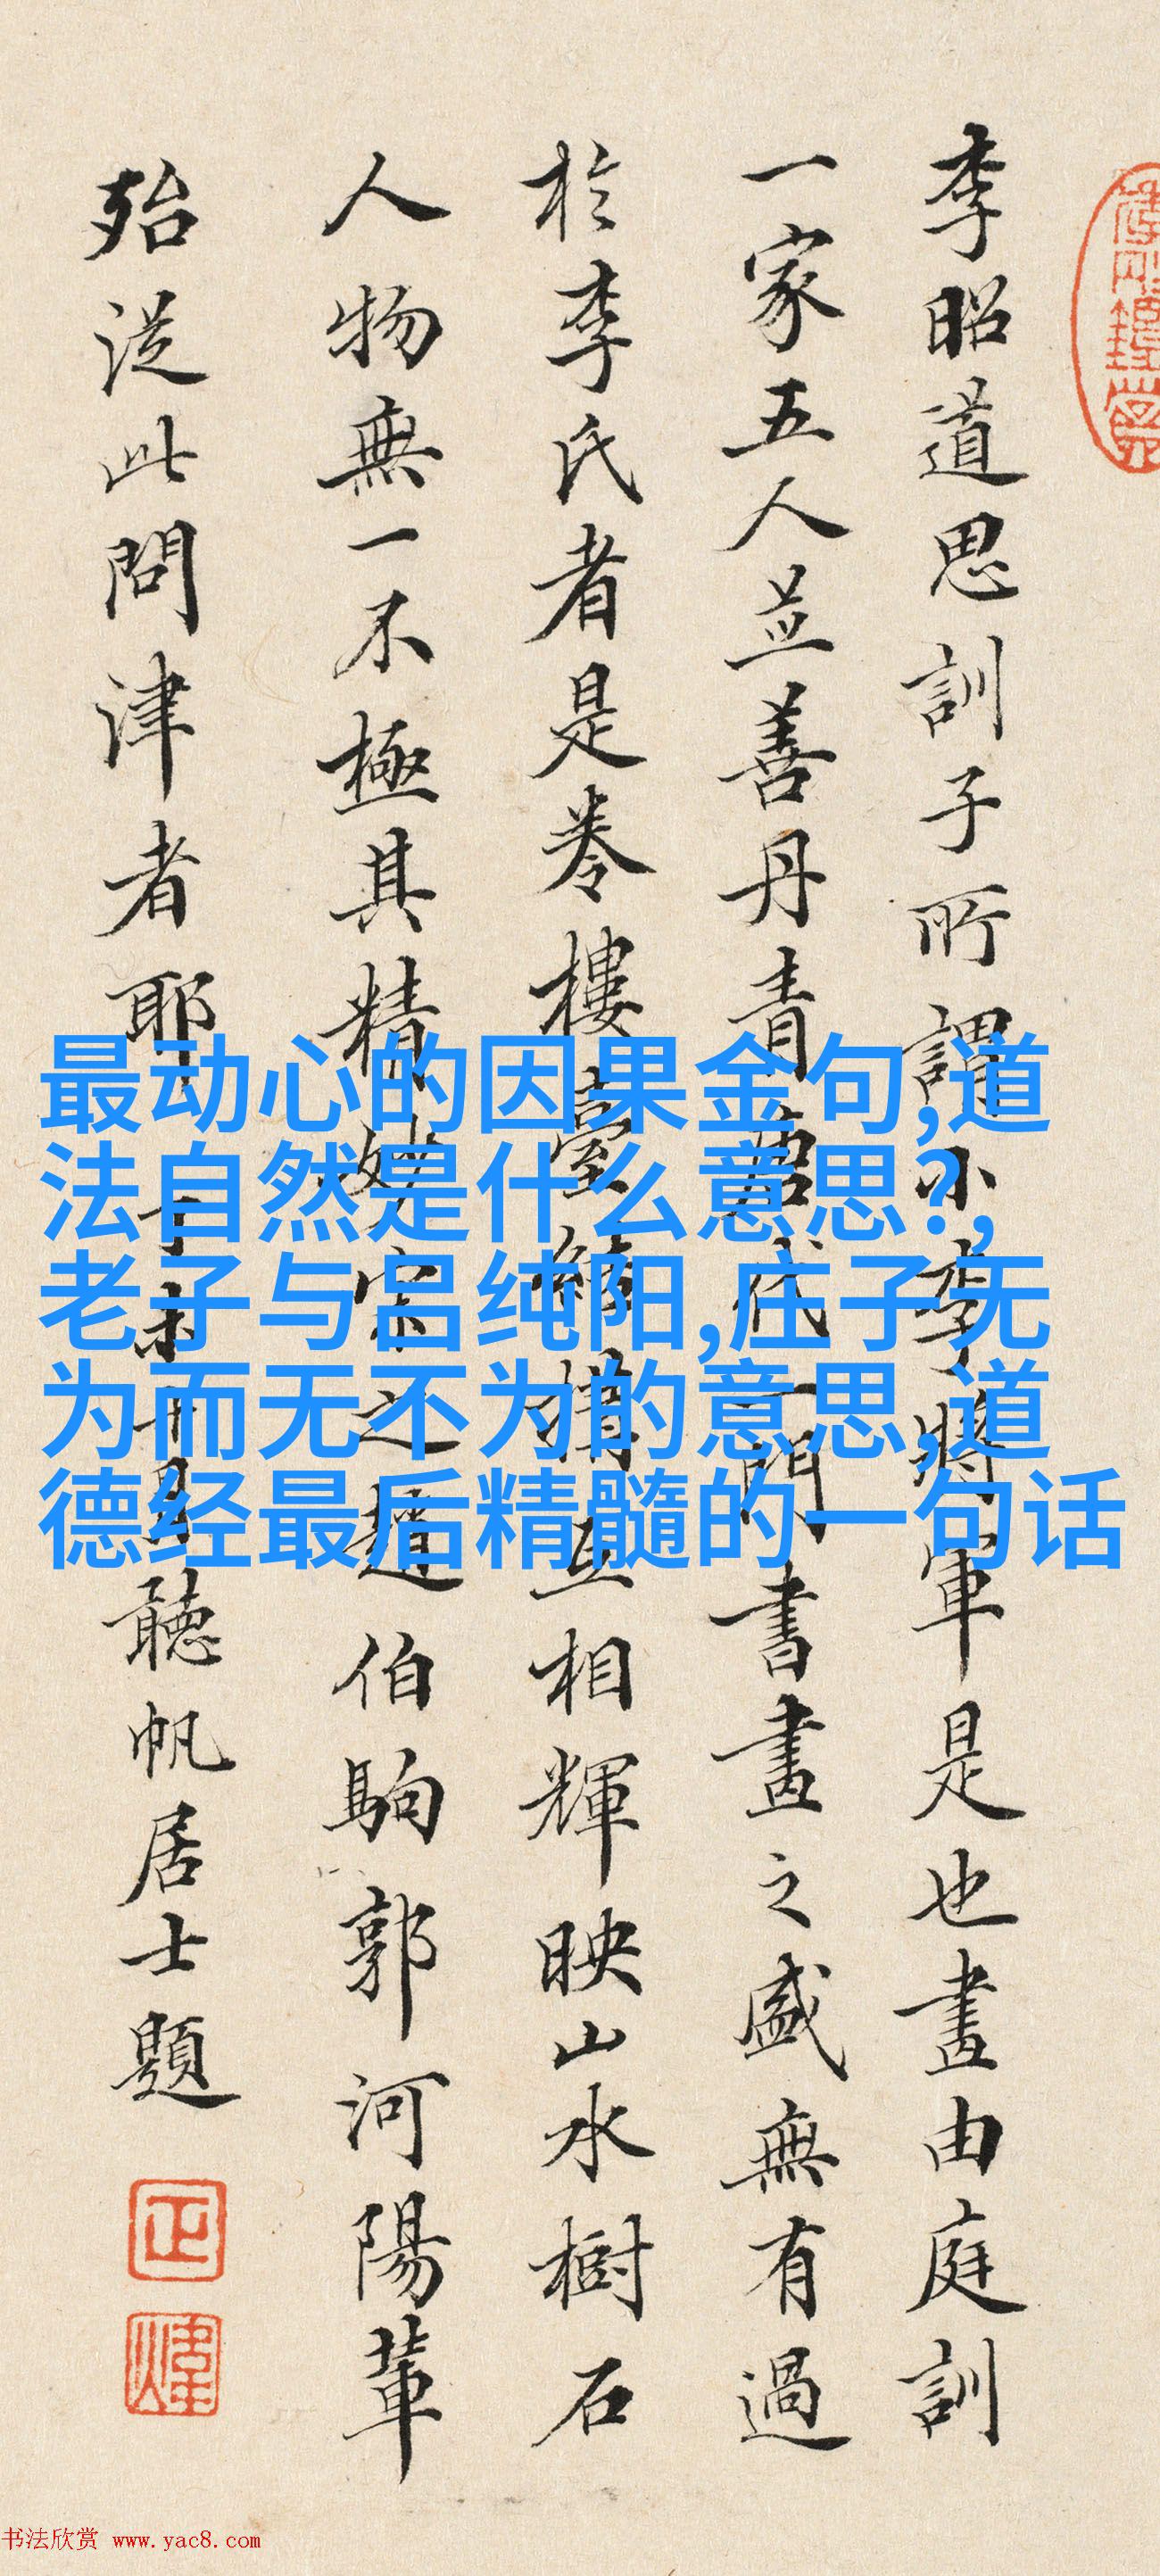 李昭道思訓子所謂小李將軍是也畫由庭訓
一家五人並善丹青唐代一門書畫之盛無有過
於李氏者是卷樓臺結構互相輝映山水樹石
人物無一不極其精妙宋之趙伯駒郭河陽輩
殆從此問津者耶
聽帆居士題
最动心的因果金句,道
法自然是什么意思?,
老子与吕纯阳,庄子无
为而无不为的意思,道
德经最后精髓的一句话
书法欣赏 www.yac8.com